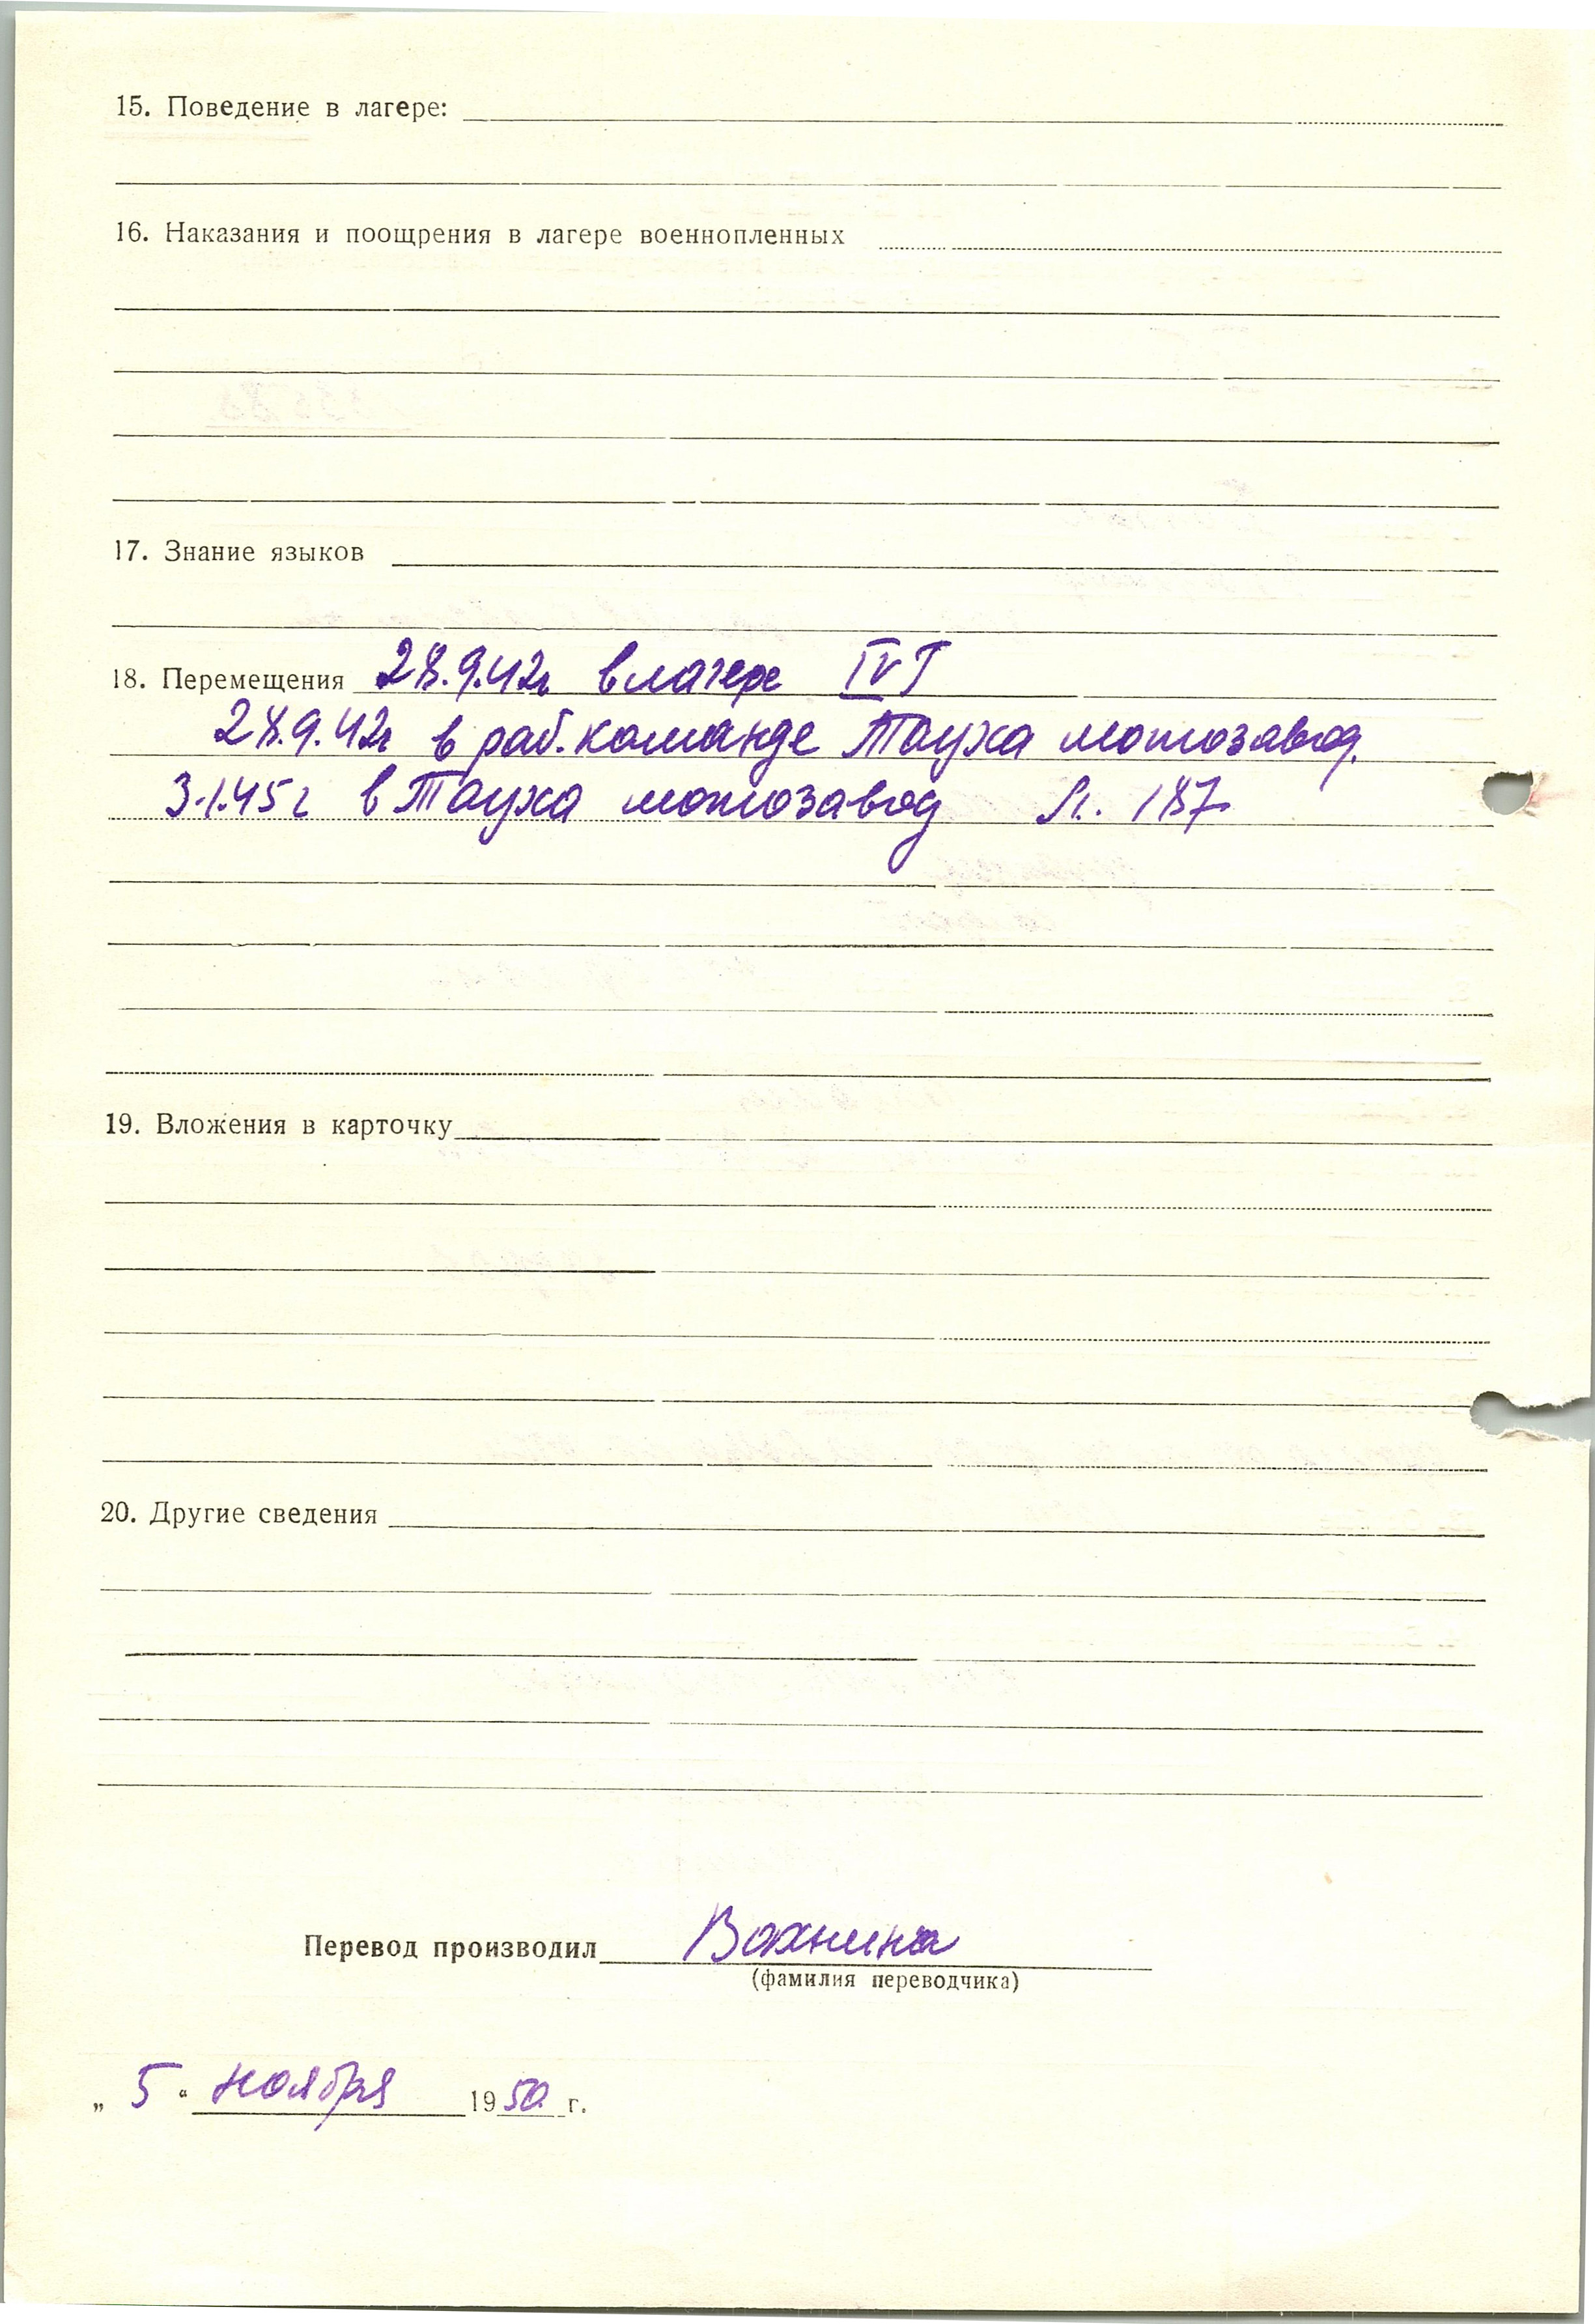 15. Поведение в лагере:
16. Наказания и поощрения в лагере военнопленных
17. Знание языков
18. Перемещения 28.9.42г в лагере IV Г
28.9.42г в раб. команде Тауха мотозавод.
3.1.45г в Тауха мотозавод Л. 187
19. Вложения в карточку
20. Другие сведения
Перевод производил Вахнина
(фамилия переводчика)
„ 5 “ ноября 1950 г.